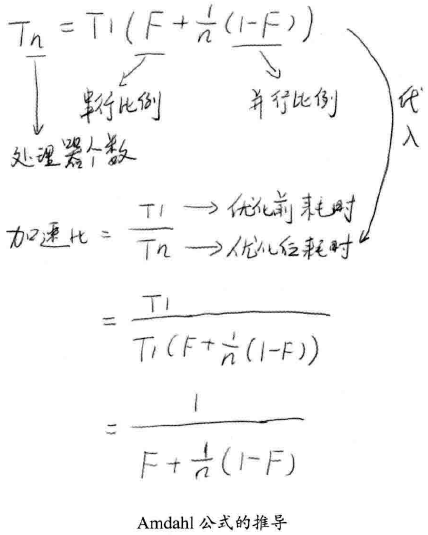 Tn = T1(F + 1/n(1-F))
串行比例 并行比例
处理器个数
代入
加速比 = T1/Tn → 优化前耗时 → 优化后耗时
= T1/(T1(F + 1/n(1-F)))
= 1/(F + 1/n(1-F))
Amdahl 公式的推导